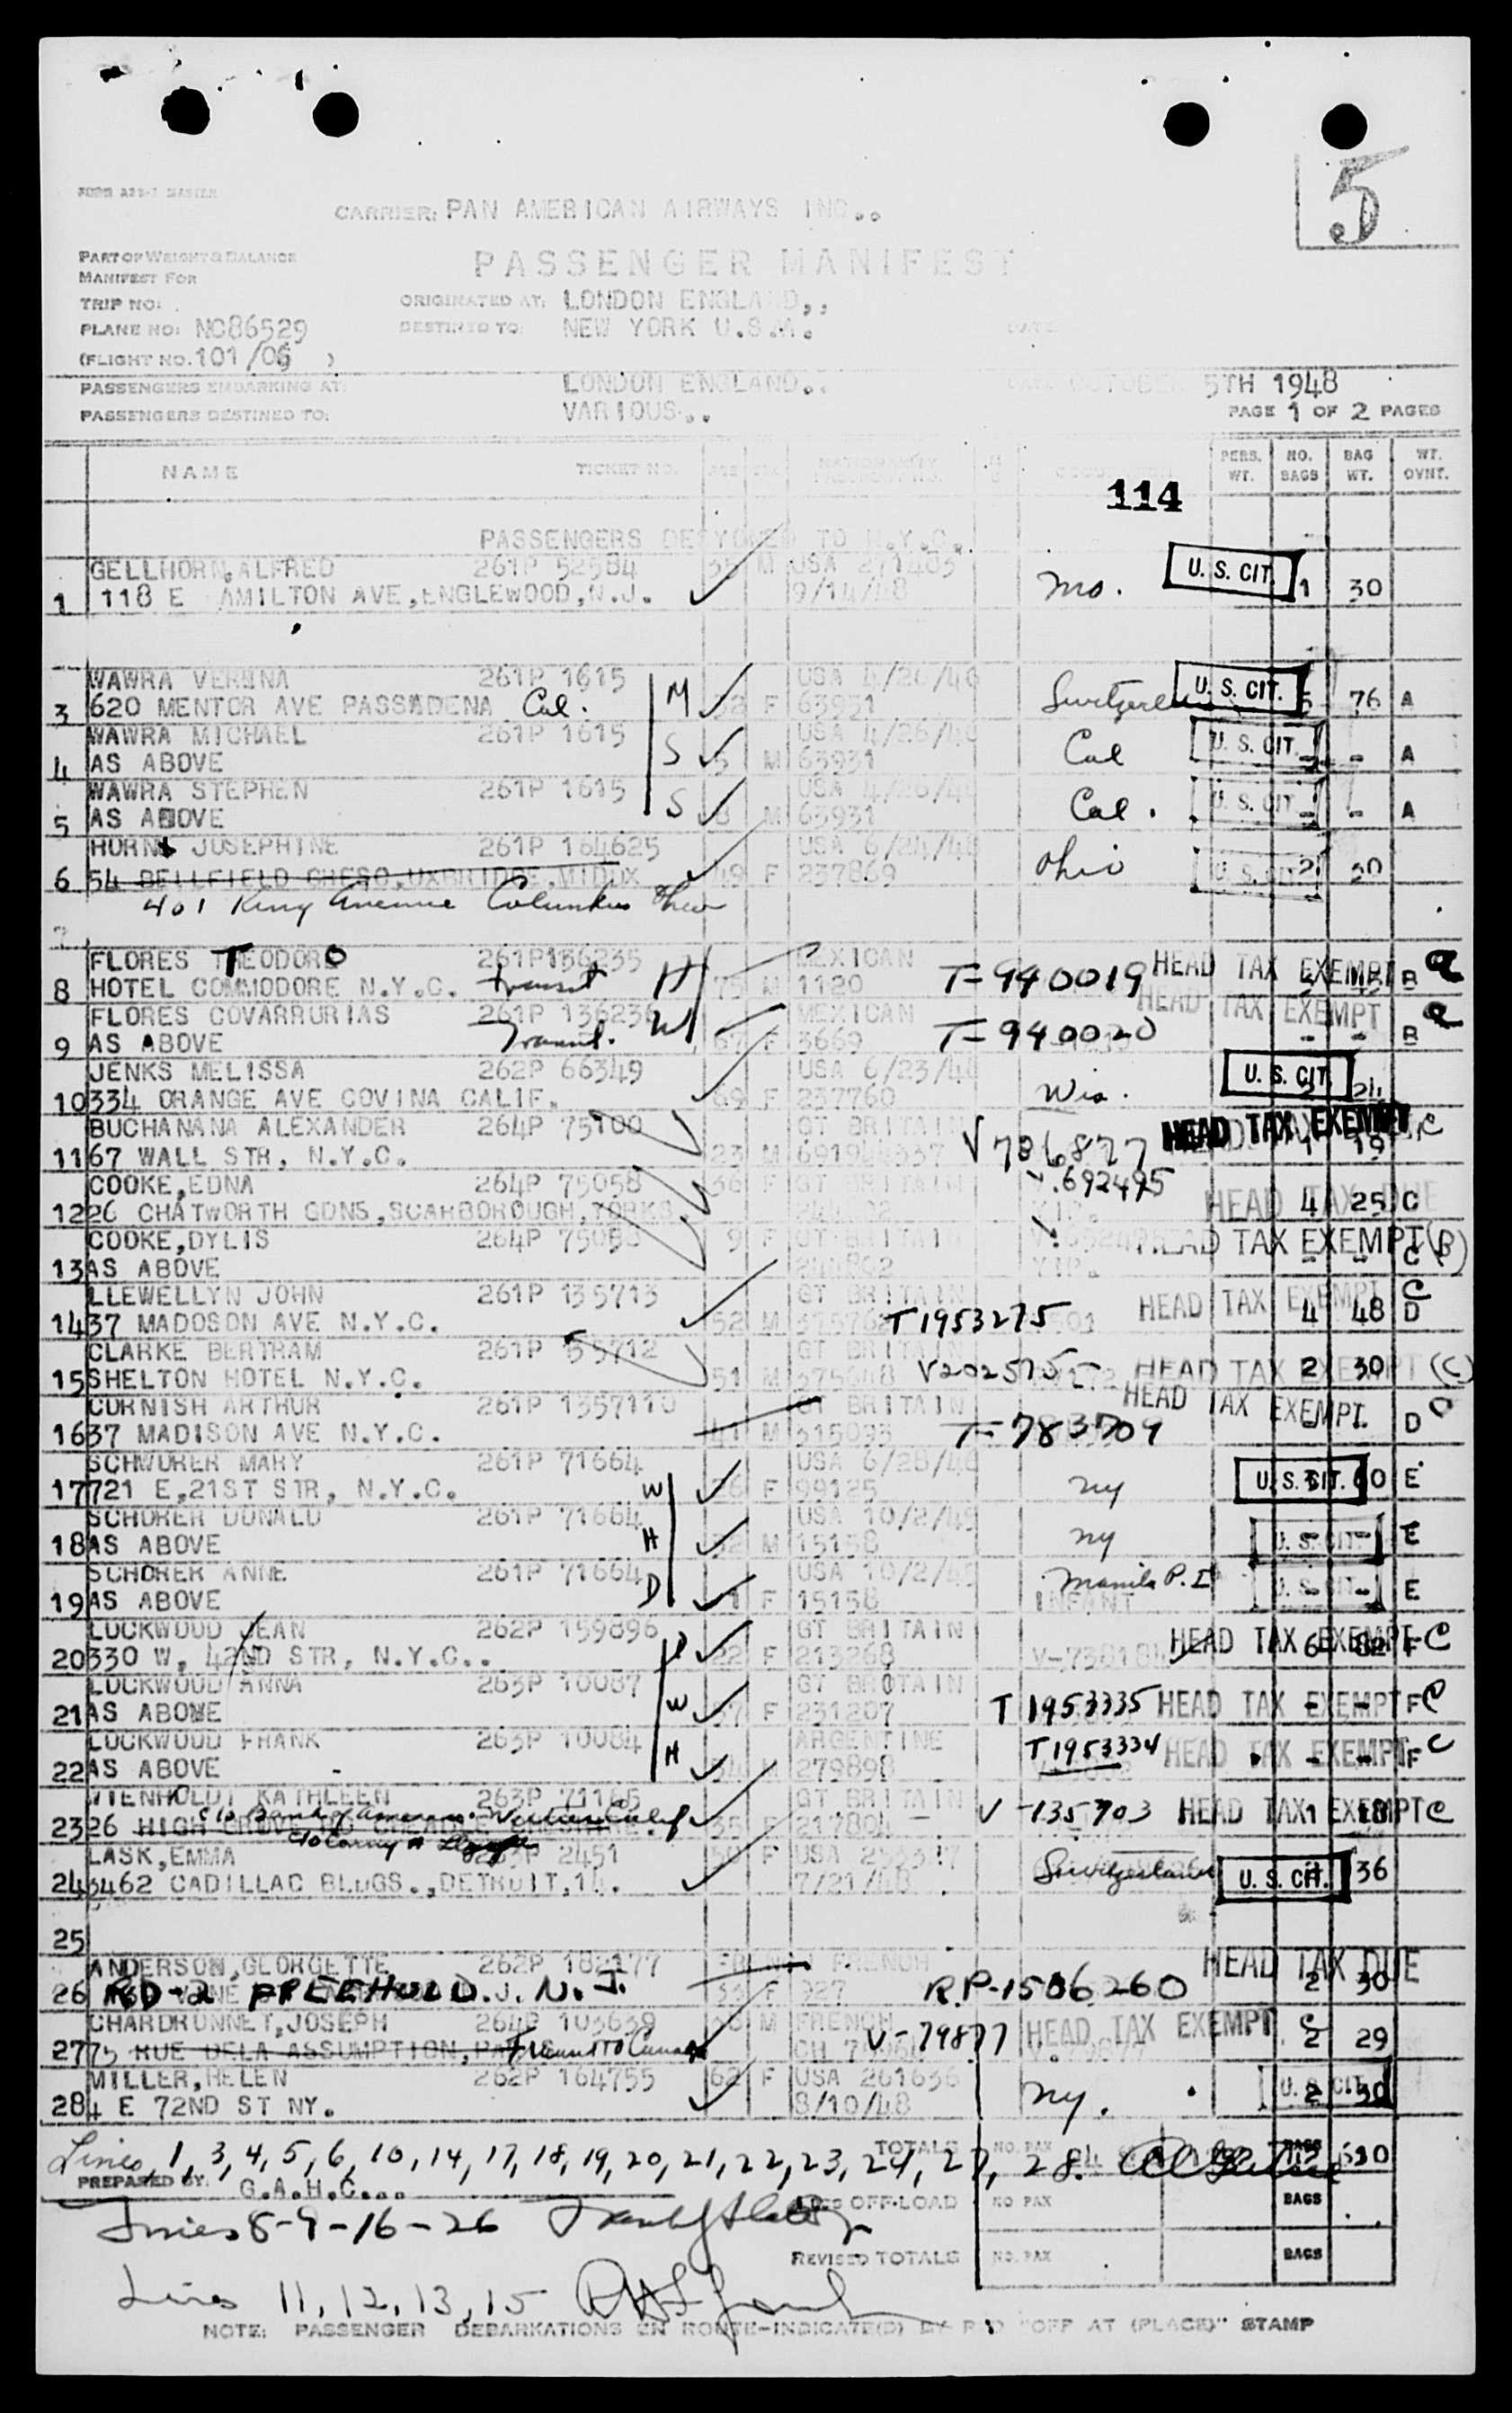 5
FORM A23-1 MASTER
CARRIER: PAN AMERICAN AIRWAYS INC..
PART OF WEIGHT & BALANCE
MANIFEST FOR
PASSENGER MANIFEST
TRIP NO:
ORIGINATED AT: LONDON ENGLAND,,
PLANE NO: NC86529
DESTINED TO: NEW YORK U.S.A.
DATE
(FLIGHT NO. 101/05 )
PASSENGERS EMBARKING AT: LONDON ENGLAND.. OCTOBER 5TH 1948
PASSENGERS DESTINED TO: VARIOUS.. PAGE 1 OF 2 PAGES
NAME TICKET NO. AGE SEX NATIONALITY PERS. WT. NO. BAGS BAG WT. WT. OVNT.
114
PASSENGERS DESTINED TO N.Y.C.
GELLHORN,ALFRED 261P 52584 35 M USA 271403
1 118 E AMILTON AVE,ENGLEWOOD,N.J. 9/14/48 Mo. U. S. CIT. 1 30
WAWRA VERENA 261P 1615 USA 4/26/46
3 620 MENTOR AVE PASSADENA Cal. M 32 F 63931 Switzerland U. S. CIT. 5 76 A
WAWRA MICHAEL 261P 1615 USA 4/26/46
4 AS ABOVE S 5 M 63931 Cal U. S. CIT. - - A
WAWRA STEPHEN 261P 1615 USA 4/26/46
5 AS ABOVE S 3 M 63931 Cal. U. S. CIT. - - A
HORN JOSEPHINE 261P 164625 USA 6/24/48
6 54 BELLFIELD CHESO,UXBRIDGE,MIDDX 49 F 237869 Ohio U. S. CIT. 2 20
401 King Avenue Columbus Ohio
7
FLORES THEODORO 261P136235 MEXICAN
8 HOTEL COMMODORE N.Y.C. transit H 75 M 1120 T-940019 HEAD TAX EXEMPT B
FLORES COVARRURIAS 261P 136236 MEXICAN
9 AS ABOVE Transit. W 67 F 3669 T-940020 HEAD TAX EXEMPT - - B
JENKS MELISSA 262P 66349 USA 6/23/48
10 334 ORANGE AVE COVINA CALIF. 69 F 237760 Wis. U. S. CIT. 24
BUCHANANA ALEXANDER 264P 75100 GT BRITAIN
11 67 WALL STR, N.Y.C. 23 M V786827 HEAD TAX EXEMPT 1 19 C
COOKE,EDNA 264P 75058 36 F GT BRITAIN V.692495
12 26 CHATWORTH GDNS,SCARBOROUGH,YORKS HEAD TAX DUE 4 25 C
COOKE,DYLIS 264P 75058 9 F GT BRITAIN
13 AS ABOVE HEAD TAX EXEMPT (B) - - C
LLEWELLYN JOHN 261P 135713 GT BRITAIN
14 37 MADOSON AVE N.Y.C. 52 M T1953275 HEAD TAX EXEMPT C 4 48 D
CLARKE BERTRAM 261P 55712 GT BRITAIN
15 SHELTON HOTEL N.Y.C. 51 M V202575 HEAD TAX EXEMPT (C) 2 30
CORNISH ARTHUR 261P 1357110 GT BRITAIN
16 37 MADISON AVE N.Y.C. 41 M 315093 T-783709 HEAD TAX EXEMPT. D
SCHWORER MARY 261P 71664 USA 6/28/46
17 721 E,21ST STR, N.Y.C. W 26 F 99125 ny U. S. CIT. 60 E
SCHORER DONALD 261P 71664 USA 10/2/45
18 AS ABOVE H 32 M 15158 ny U. S. CIT. E
SCHORER ANNE 261P 71664 USA 10/2/45
19 AS ABOVE D 1 F 15158 Manila P.I INFANT U. S. CIT. E
LOCKWOOD JEAN 262P 159896 GT BRITAIN
20 330 W, 42ND STR, N.Y.C.. D 22 F 213268 HEAD TAX EXEMPT C 6 82 F
LOCKWOOD ANNA 263P 10087 GT BROTAIN
21 AS ABOVE W 57 F 231207 T 1953335 HEAD TAX EXEMPT F C
LOCKWOOD FRANK 263P 10084 ARGENTINE
22 AS ABOVE H 54 M 279898 T1953334 HEAD TAX EXEMPT F C
KATHLEEN 263P 71165 GT BRITAIN
c/o Bank of America
23 26 HIGH GROVE 35 F 217804 V-135703 HEAD TAX EXEMPT C 1
LASK,EMMA 2451 50 F USA
24 3462 CADILLAC BLDGS.,DETROIT,14. 7/21/48 Switzerland U. S. CIT. 36
25
ANDERSON,GEORGETTE 262P 182177 FRENCH
26 RD-2 FREEHOLD N.J. 33 F 927 R.P-1506260 HEAD TAX DUE 2 30
CHARDRONNET,JOSEPH 264P 103639 M FRENCH
27 75 RUE DELA ASSUMPTION, Transit to Canada V-79877 HEAD TAX EXEMPT C 2 29
MILLER,HELEN 262P 164755 62 F USA 261636
28 4 E 72ND ST NY. 8/10/48 ny. U. S. CIT. 2 30
Lines 1, 3, 4, 5, 6, 10, 14, 17, 18, 19, 20, 21, 22, 23, 24, 27, 28.
TOTALS NO. PAX BAGS
PREPARED BY: G.A.H.C...
LESS OFF-LOAD NO PAX BAGS
Lines 8-9-16-26
REVISED TOTALS NO. PAX BAGS
Lines 11, 12, 13, 15
NOTE: PASSENGER DEBARKATIONS EN ROUTE-INDICATE(D) BY RED "OFF AT (PLACE)" STAMP